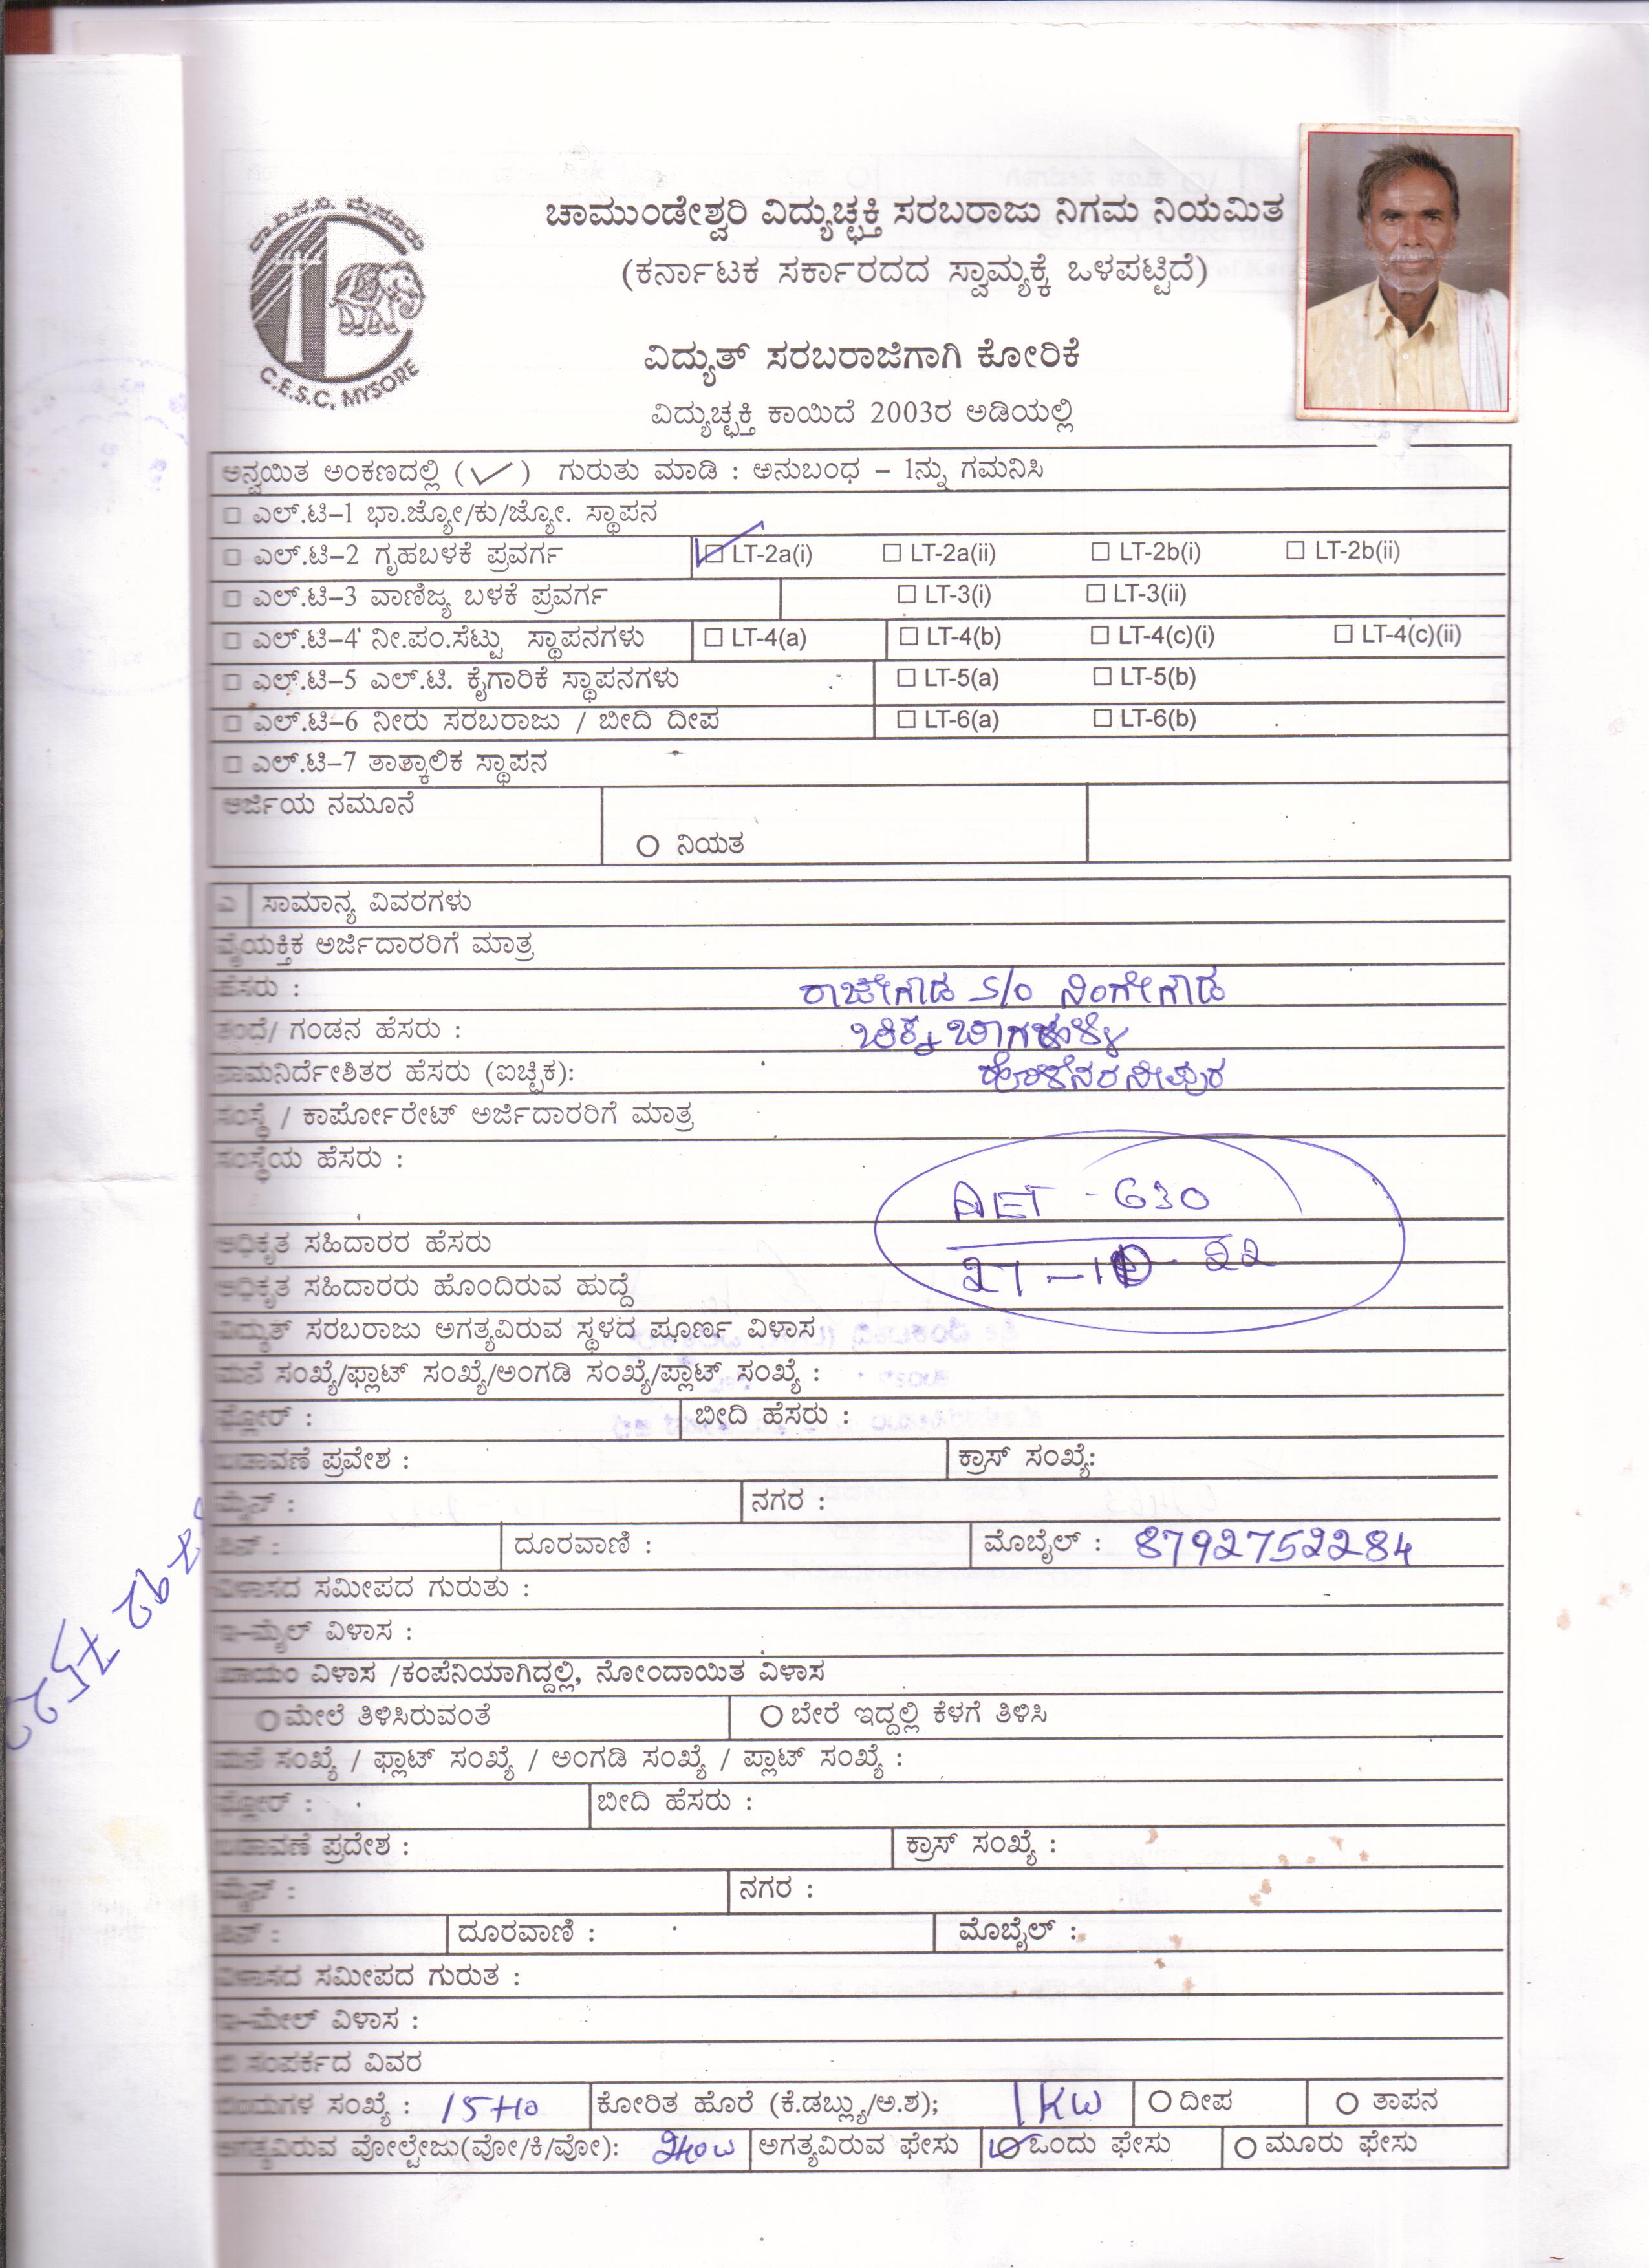 ಚಾ.ವಿ.ಸ.ನಿ. ಮೈಸೂರು
C.E.S.C, MYSORE
ಚಾಮುಂಡೇಶ್ವರಿ ವಿದ್ಯುಚ್ಛಕ್ತಿ ಸರಬರಾಜು ನಿಗಮ ನಿಯಮಿತ
(ಕರ್ನಾಟಕ ಸರ್ಕಾರದದ ಸ್ವಾಮ್ಯಕ್ಕೆ ಒಳಪಟ್ಟಿದೆ)
ವಿದ್ಯುತ್ ಸರಬರಾಜಿಗಾಗಿ ಕೋರಿಕೆ
ವಿದ್ಯುಚ್ಛಕ್ತಿ ಕಾಯಿದೆ 2003ರ ಅಡಿಯಲ್ಲಿ
ಅನ್ವಯಿತ ಅಂಕಣದಲ್ಲಿ (✓) ಗುರುತು ಮಾಡಿ : ಅನುಬಂಧ – 1ನ್ನು ಗಮನಿಸಿ
□ ಎಲ್.ಟಿ–1 ಭಾ.ಜ್ಯೋ/ಕು/ಜ್ಯೋ. ಸ್ಥಾಪನ
□ ಎಲ್.ಟಿ–2 ಗೃಹಬಳಕೆ ಪ್ರವರ್ಗ ☑ LT-2a(i) □ LT-2a(ii) □ LT-2b(i) □ LT-2b(ii)
□ ಎಲ್.ಟಿ–3 ವಾಣಿಜ್ಯ ಬಳಕೆ ಪ್ರವರ್ಗ □ LT-3(i) □ LT-3(ii)
□ ಎಲ್.ಟಿ–4 ನೀ.ಪಂ.ಸೆಟ್ಟು ಸ್ಥಾಪನಗಳು □ LT-4(a) □ LT-4(b) □ LT-4(c)(i) □ LT-4(c)(ii)
□ ಎಲ್.ಟಿ–5 ಎಲ್.ಟಿ. ಕೈಗಾರಿಕೆ ಸ್ಥಾಪನಗಳು □ LT-5(a) □ LT-5(b)
□ ಎಲ್.ಟಿ–6 ನೀರು ಸರಬರಾಜು / ಬೀದಿ ದೀಪ □ LT-6(a) □ LT-6(b)
□ ಎಲ್.ಟಿ–7 ತಾತ್ಕಾಲಿಕ ಸ್ಥಾಪನ
ಅರ್ಜಿಯ ನಮೂನೆ
○ ನಿಯತ
ಎ ಸಾಮಾನ್ಯ ವಿವರಗಳು
ವೈಯಕ್ತಿಕ ಅರ್ಜಿದಾರರಿಗೆ ಮಾತ್ರ
ಹೆಸರು : ರಾಜೇಗೌಡ S/o ನಿಂಗೇಗೌಡ
ತಂದೆ/ ಗಂಡನ ಹೆಸರು :
ನಾಮನಿರ್ದೇಶಿತರ ಹೆಸರು (ಐಚ್ಛಿಕ):
ಸಂಸ್ಥೆ / ಕಾರ್ಪೋರೇಟ್ ಅರ್ಜಿದಾರರಿಗೆ ಮಾತ್ರ
ಸಂಸ್ಥೆಯ ಹೆಸರು :
AET - 630
ಅಧಿಕೃತ ಸಹಿದಾರರ ಹೆಸರು
ಅಧಿಕೃತ ಸಹಿದಾರರು ಹೊಂದಿರುವ ಹುದ್ದೆ
ವಿದ್ಯುತ್ ಸರಬರಾಜು ಅಗತ್ಯವಿರುವ ಸ್ಥಳದ ಪೂರ್ಣ ವಿಳಾಸ
ಮನೆ ಸಂಖ್ಯೆ/ಫ್ಲಾಟ್ ಸಂಖ್ಯೆ/ಅಂಗಡಿ ಸಂಖ್ಯೆ/ಪ್ಲಾಟ್ ಸಂಖ್ಯೆ :
ಫ್ಲೋರ್ : ಬೀದಿ ಹೆಸರು :
ಬಡಾವಣೆ ಪ್ರವೇಶ : ಕ್ರಾಸ್ ಸಂಖ್ಯೆ:
ಮೈನ್ : ನಗರ :
ಪಿನ್ : ದೂರವಾಣಿ : ಮೊಬೈಲ್ : 8792752284
ವಿಳಾಸದ ಸಮೀಪದ ಗುರುತು :
ಇ–ಮೈಲ್ ವಿಳಾಸ :
ಖಾಯಂ ವಿಳಾಸ /ಕಂಪೆನಿಯಾಗಿದ್ದಲ್ಲಿ, ನೋಂದಾಯಿತ ವಿಳಾಸ
○ ಮೇಲೆ ತಿಳಿಸಿರುವಂತೆ ○ ಬೇರೆ ಇದ್ದಲ್ಲಿ ಕೆಳಗೆ ತಿಳಿಸಿ
ಮನೆ ಸಂಖ್ಯೆ / ಫ್ಲಾಟ್ ಸಂಖ್ಯೆ / ಅಂಗಡಿ ಸಂಖ್ಯೆ / ಪ್ಲಾಟ್ ಸಂಖ್ಯೆ :
ಫ್ಲೋರ್ : ಬೀದಿ ಹೆಸರು :
ಬಡಾವಣೆ ಪ್ರದೇಶ : ಕ್ರಾಸ್ ಸಂಖ್ಯೆ :
ಮೈನ್ : ನಗರ :
ಪಿನ್ : ದೂರವಾಣಿ : ಮೊಬೈಲ್ :
ವಿಳಾಸದ ಸಮೀಪದ ಗುರುತ :
ಇ–ಮೇಲ್ ವಿಳಾಸ :
ಬಿ ಸಂಪರ್ಕದ ವಿವರ
ಸಂಖ್ಯೆ : 15+10 ಕೋರಿತ ಹೊರೆ (ಕೆ.ಡಬ್ಲ್ಯು/ಅ.ಶ); 1KW ○ ದೀಪ ○ ತಾಪನ
ಅಗತ್ಯವಿರುವ ವೋಲ್ಟೇಜು(ವೋ/ಕಿ/ವೋ): ಅಗತ್ಯವಿರುವ ಫೇಸು ಒಂದು ಫೇಸು ○ ಮೂರು ಫೇಸು